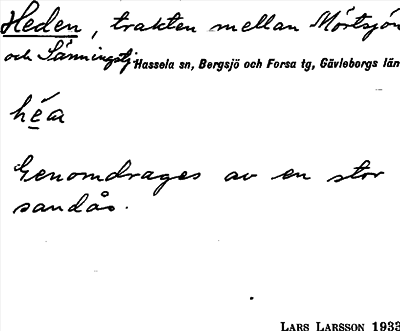 Heden, trakten mellan Mörtsjön
och Sänningstj. Hassela sn, Bergsjö och Forsa tg, Gävleborgs län
héa
Genomdrages av en stor
sandås.
LARS LARSSON 1933